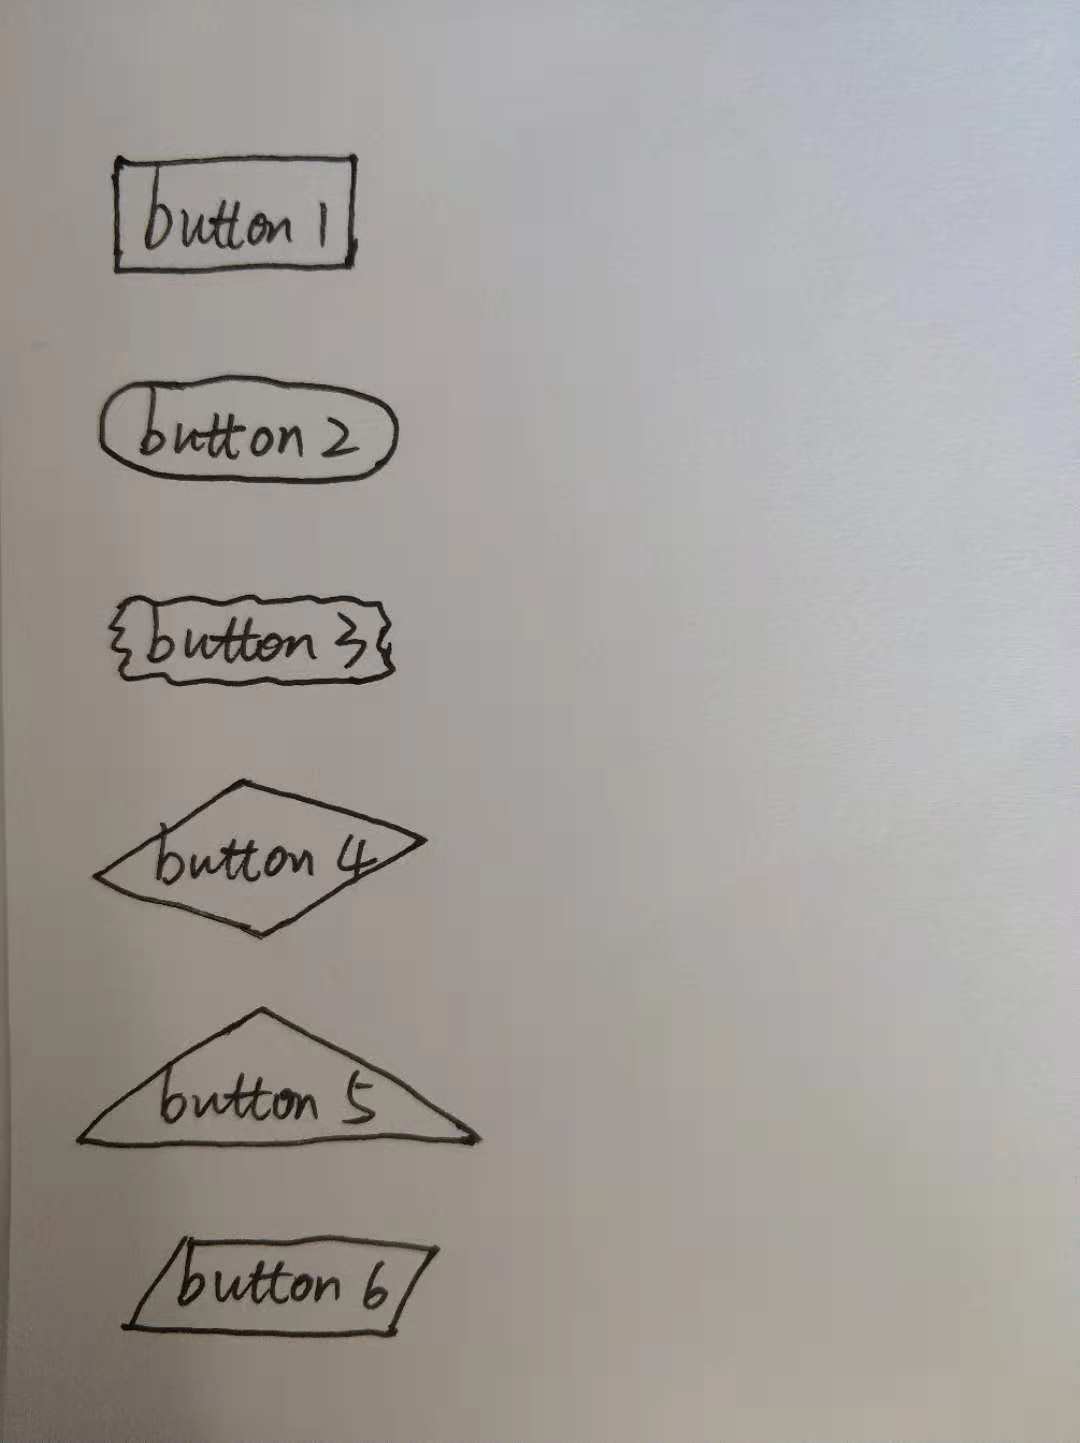 button 1
button 2
button 3
button 4
button 5
button 6